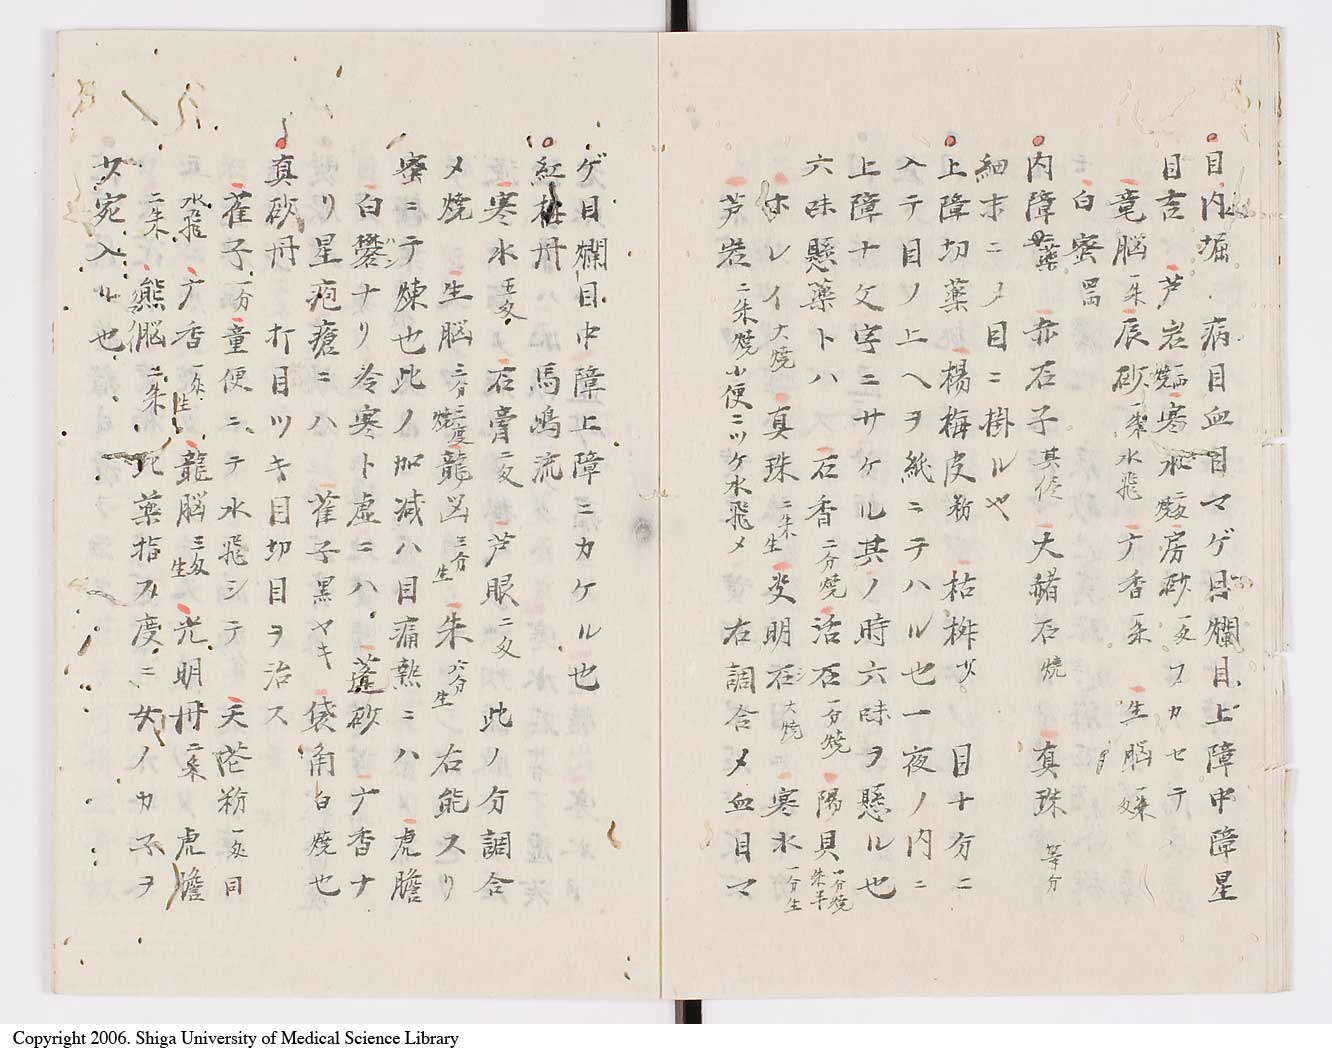 目内堀 病目血目マゲ目爛目上障中障星
目吉 芦岩 焼 寒水 二匁 房砂 一匁 フカセテ
竜脳 一朱 辰砂 一朱 水飛 广香 一朱 生脳
白蜜
内障 薬 赤石子 其儘 大赭石 焼 真珠 等分
細末ニメ目ニ掛ルヤ
上障切薬 楊梅皮 粉 枯 少 目十分ニ
入テ目ノ上ヘヲ紙ニテハル也一夜ノ内ニ
上障十文字ニサケル其ノ時六味ヲ懸ル也
六味懸薬トハ 石香 二分焼 活石 一分焼 陽貝 一分焼 朱半
ホレイ 大焼 真珠 二朱生 明石 大焼 寒水 一分生
芦岩 二朱焼小便ニツケ水飛メ 右調合メ血目マ
ゲ目爛目中障上障ニカケル也
紅梅丹 馬嶋流
寒水 五匁 石膏 二匁 芦眼 二匁 此ノ分調合
メ焼 生脳 二分 三度焼 龍 三分生 朱 六分生 右能スリ
蜜ニテ煉也此ノ加减ハ目痛熱ニハ 虎膽
白礬ナリ冷寒ト虚ニハ 蓬砂 广香ナ
リ星疱瘡ニハ 雀子黒ヤキ 袋角白焼也
真砂丹 打目ツキ目切目ヲ治ス
雀子 一分 童便ニテ水飛シテ 天 粉 一匁 同
水飛 广香 一匁生 龍脳 三匁生 光明丹 二朱 虎膽
二朱 熊脳 二朱 此薬指ス度ニ女ノカ子ヲ
少宛入ル也
Copyright 2006. Shiga University of Medical Science Library